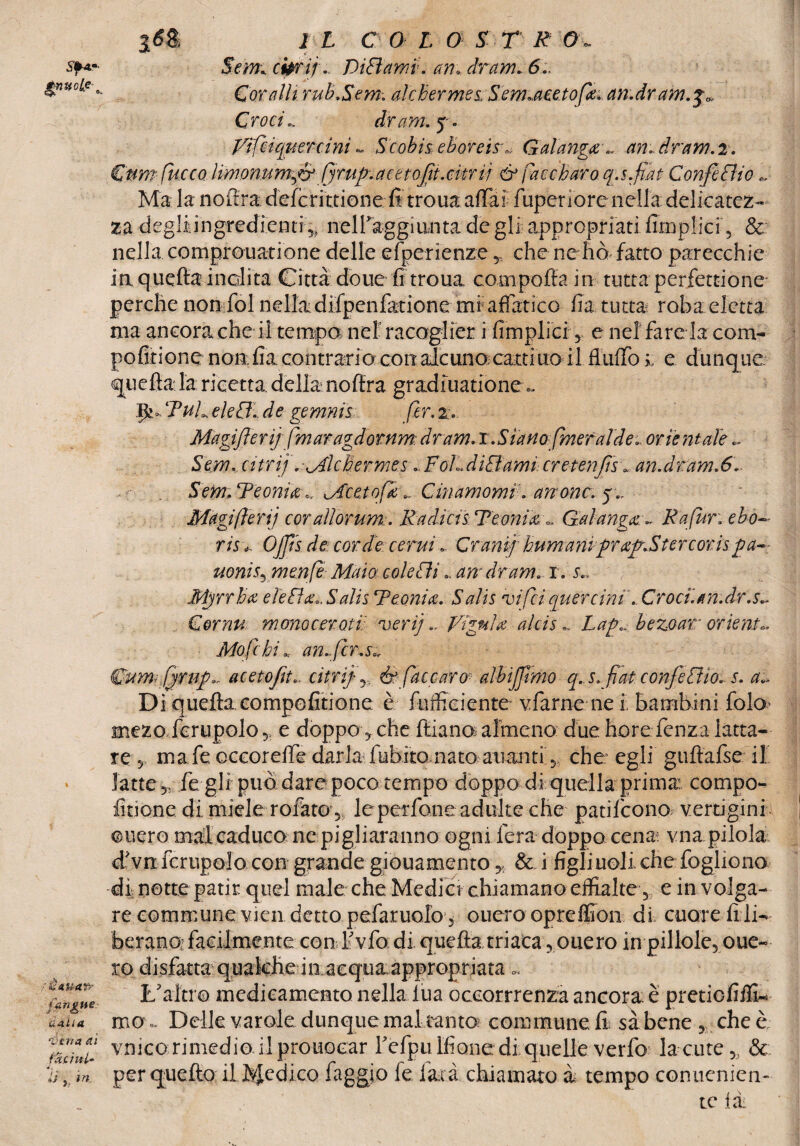 368 IL COLOSTRO.
Spa-
gnuole.
Sem. citrij. Dictami. an. dram. 6.
Coralli rub. Sem. alchermes. Sem. acetosæ. an. dram. 5.
Croci. dram. 5.
Viscequercini. Scobis eboreis. Galangæ. an. dram. 2.
Cum succo limonum, & syrup. acetosit. citrij & saccharo q.s. fiat Confectio.
Ma la nostra descrittione si troua assai superiore nella delicatez-
za degli ingredienti, nell'aggiunta de gli appropriati simplici, &
nella comprouatione delle esperienze, che ne hò fatto parecchie
in questa inclita Città doue si troua composta in tutta perfettione
perche non sol nella dispensatione mi affatico sia tutta roba eletta
ma ancora che il tempo nel racoglier i simplici, e nel fare la com-
positione non sia contrario con alcuno cattiuo il flusso; e dunque
questa la ricetta della nostra graduatione.
℞. Pul. elect. de gemnis scr. 2.
Magisterij smaragdornm dram. 1. Siano smeralde. orientale.
Sem. citrij. Alchermes. Fol. dictami cretensis. an. dram. 6.
Sem. Peoniæ. Acetosæ. Cinamomi. an onc. 5.
Magisterij corallorum. Radicis Peoniæ. Galangæ. Rasur. ebo-
ris. Ossis de corde cerui. Cranij humani præp. Stercoris pa-
uonis, mense Maio colecti. an dram. 1. s.
Myrrhæ electæ. Salis Peoniæ. Salis visci quercini. Croci. an. dr. s.
Cornu monoceroti verij. Vigulæ alcis. Lap. bezoar orient.
Moschi. an. scr. s.
Cum syrup. acetosit. citrij, & saccaro albissimo q. s. fiat confectio. s. a.
Di questa compositione è sufficiente vsarne ne i bambini solo
mezo scrupolo, e doppo, che stiano almeno due hore senza latta-
re, ma se occoresse darla subito nato auanti, che egli gustasse il
latte, se gli può dare poco tempo doppo di quella prima compo-
sitione di miele rosato, le persone adulte che patiscono vertigini
ouero mal caduco ne pigliaranno ogni sera doppo cena vna pilola
d'vn scrupolo con grande giouamento, & i figliuoli che sogliono
di notte patir quel male che Medici chiamano effialte, e in volga-
re commune vien detto pesaruolo, ouero opression di cuore si li-
berano facilmente con l'vso di questa triaca, ouero in pillole, oue-
ro disfatta qualche in acqua appropriata.
L'altro medicamento nella sua occorrrenza ancora è pretiosissi-
mo. Delle varole dunque mal tanto commune si sà bene, che è
vnico rimedio il prouocar l'espulsione di quelle verso la cute, &
per questo il Medico saggio se sarà chiamato à tempo conuenien-
te sà
Cauar
sangue
dalla
vena ai
faciul-
li, in